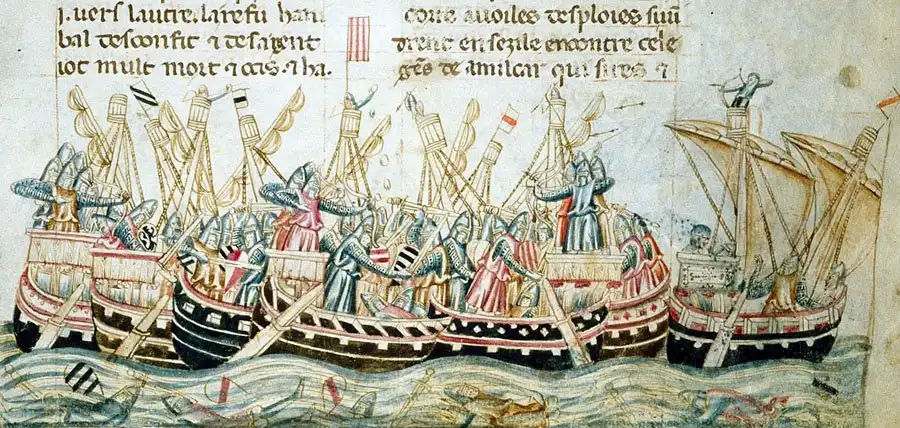 J. uers lautre. la refu han.
bal desconfit ⁊ de sa gent
iot mult mort ⁊ ocis. ⁊ ha.
corre auoiles desploies
drent en sezile encontre cele
gẽs de amilcar qui sires ⁊